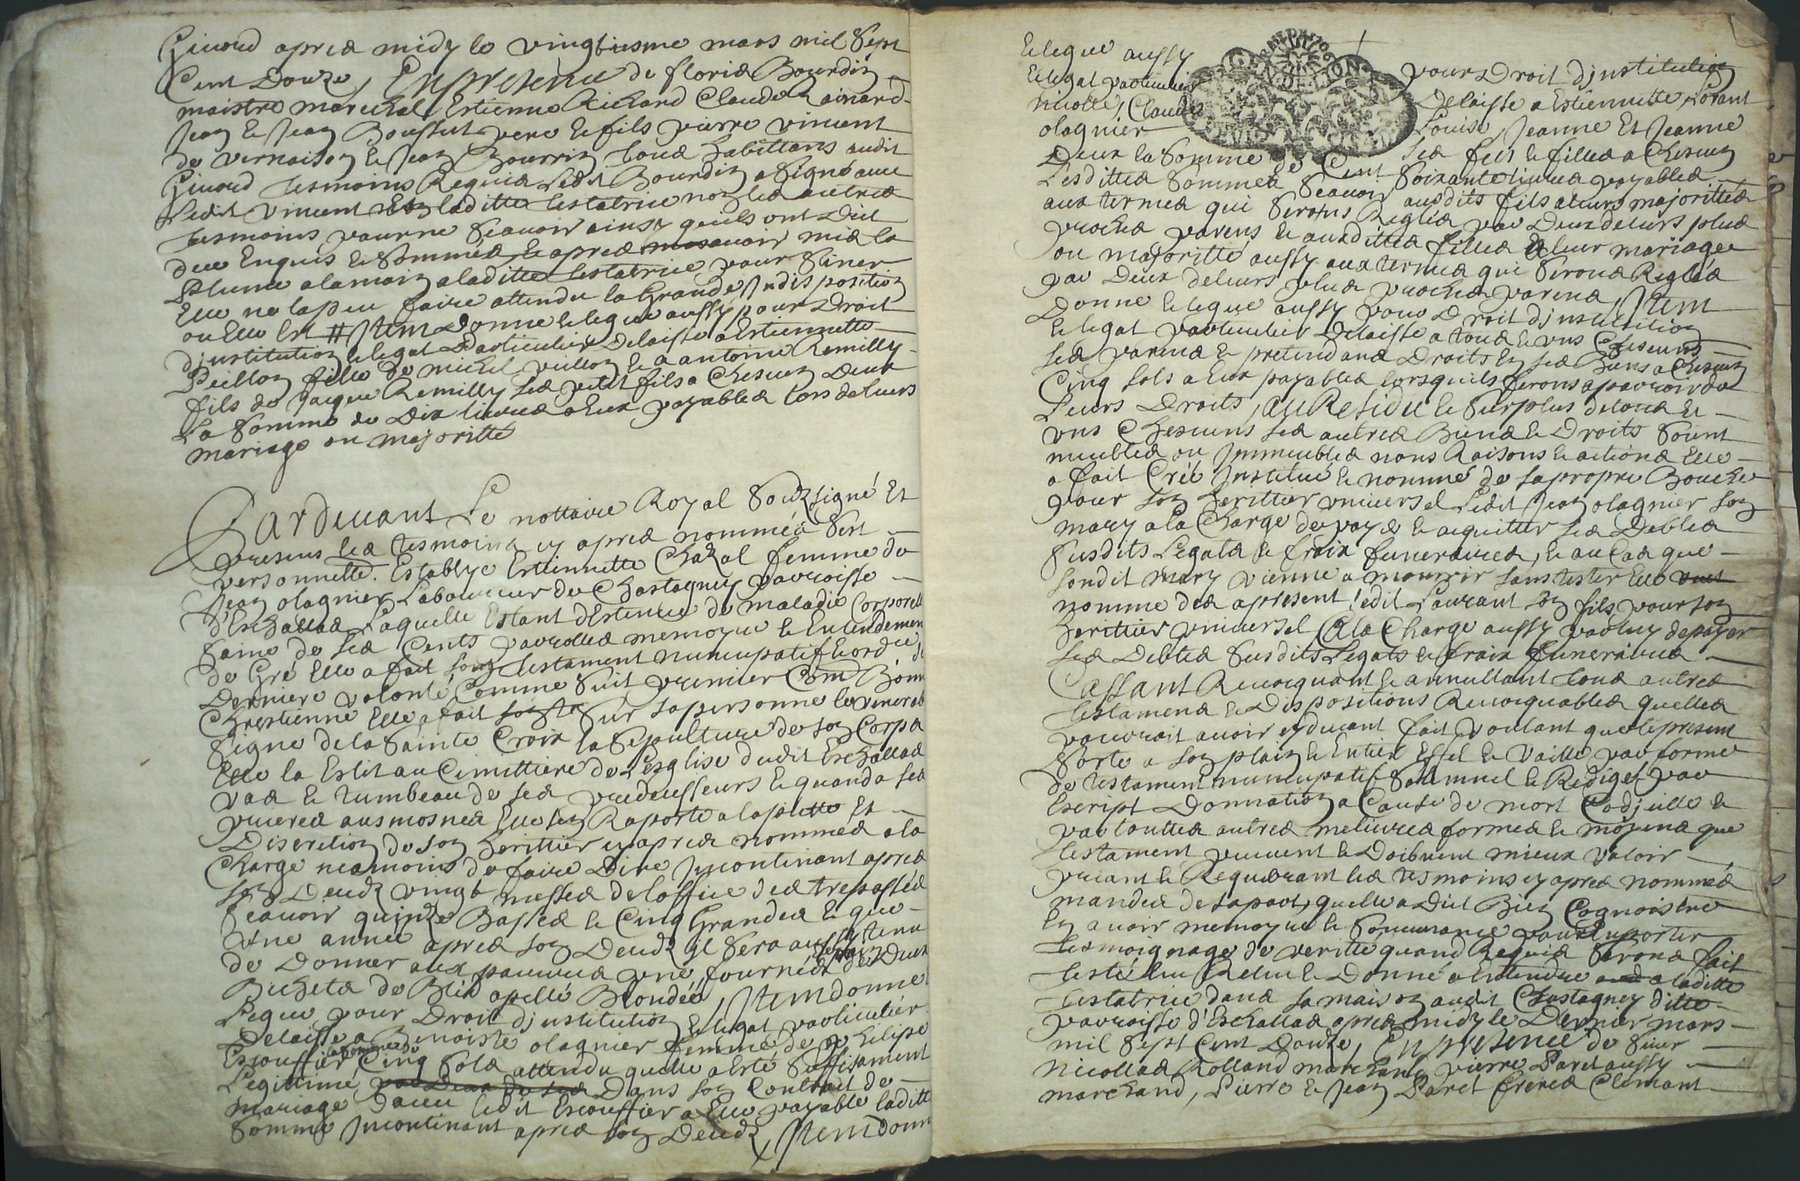 Givord apres midy le vingtiesme mars mil sept
Cent Douze, En presence de floris Bourdin
maistre marechal Estienne Richard Claude Rainard
Jean & Jean Boussut pere & fils pierre vincent
de vernaison & Jean Bourrin tous habittans audit
Givord tesmoins Requis Ledit Bourdin a signé avec
Ledit vincent non laditte testatrice non les autres
tesmoins pour ne sçavoir ainsy quils ont Dit
deue Enquis & sommés & apres avoir mis la
plume a la main a laditte testatrice pour siner
Elle ne la peu faire attendu la Grande Indisposition
ou Elle Est # Item Donne & legue aussy pour Droit
dinstitution & legat particulier Delaisse a Estiennette
peillon fille de michel peillon & a antoine Remilly
fils de Jaque Remilly ses petit fils a Chescun Deux
La somme de Dix livres a Eux payables lors de leurs
mariage ou majoritté
Pardevant Le nottaire Royal soubzsigné Et
presens les tesmoins cy apres nommés sest
personnelle. Establye Estiennette Chazal femme de
Jean olagnier Laboureur du Chastagney parroisse
d'Eschallas Laquelle Estant dEstenue de maladie Corporelle
saine de ses Cents parrolles memoyre & Entendement
de Gré Elle a fait son testament nuncupatif & ordre de
Derniere volonté Comme suit premier Comme Bonne
Chrestienne Elle a fait sur sa personne le venerable
signe de la sainte Croix la sepulture de son Corps
Elle la Eslit au Cimittiere de Lesglise dudit Eschallas
vas & tumbeau de ses predecesseurs & quand a ses
prieres ausmosnes Elle sen Raporte a la piette Et
Discretion de son heritier cy apres nommé a la
Charge neamoins de faire Dire Incontinant apres
son Deudz vingt messes de loffice des trepassés
sçavoir quinze Basses & Cinq Grandes & que
Une année apres son Deudz Il sera aussy tenu
de Donner aux pauvres une fournée de pain de Deux
Bichets de Bled apellé Blondée, Item donne
Legue pour Droit dinstitution & legat particulier
Delaisse a Benoiste olagnier femme de philipe
Escouffier la somme de Cinq sols attendu quelle a Esté suffisament
Legittimé dans son Contrait de
mariage avec ledit Escouffier a Elle payable laditte
somme Incontinant apres son Deudz, Item donne
& legue aussy pour Droit dinstitution
& legat particulier Delaisse a Estiennette Lorant
nicolle, Claude Louise, Jeanne Et Jeanne
olagnier ses fils & filles a Chescun
Deux la somme de Cent soixante livres payables
Lesdittes sommes sçavoir ausdits fils a leurs majorittés
aux termes qui serons Reglés par Deux de leurs plus
proches parens & ausdittes filles a leur mariage
ou majoritté aussy aux termes qui serons Reglés
par Deux de leurs plus proches parens, Item
Donne & legue aussy pour Droit dinstitution
& legat particulier Delaisse a tous & uns Chescuns
ses parens & pretendans Droits En ses Biens a Chescun
Cinq sols a Eux payables lorsquils ferons aparroir de
Leurs Droits, au Residu & surplus de tous &
uns Chescuns ses autres Biens & Droits soient
meubles ou Immeubles noms Raisons & actions Elle
a fait Créé Institué & nommé de sa propre Bouche
pour son heritier universel Ledit Jean olagnier son
mary a la Charge de payer & aquitter ses Debtes
susdits Legats & fraix funeraires, & au Cas que
sondit mary vienne a mourrir sans tester Elle
nomme des apresent ledit Laurant son fils pour son
heritier universel a la Charge aussy par luy de payer
ses Debtes susdits Legats & fraix funeraires
Cassant Revoquant & annullant tous autres
testamens & Dispositions Revoquables quelles
pourroit avoir cy devant fait voulant que le present
sorte a son plain & Entier Effet & vaille par forme
de testament nuncupatif solemnel & Redigé par
Escript Donnation a Cause de mort Codjeille &
par touttes autres melieures formes & moyens que
testament peuvent & Doibvent mieux valoir
priant & Requerant les tesmoins cy apres nommés
mandés de sa part, quelle a Dit Bien Cognoistre
En avoir memoyre & souvenance pour En porter
tesmoignage de veritté quand Requis serons fait
testé leu Releu & Donné a Entendre a laditte
testatrice dans sa maison audit Chastagney ditte
parroisse d'Eschallas apres midy le Dernier mars
mil sept Cent Douze, En presence de sieur
nicollas Rolland marchand pierre Paret aussy
marchand, Pierre & Jean Paret freres Clemant